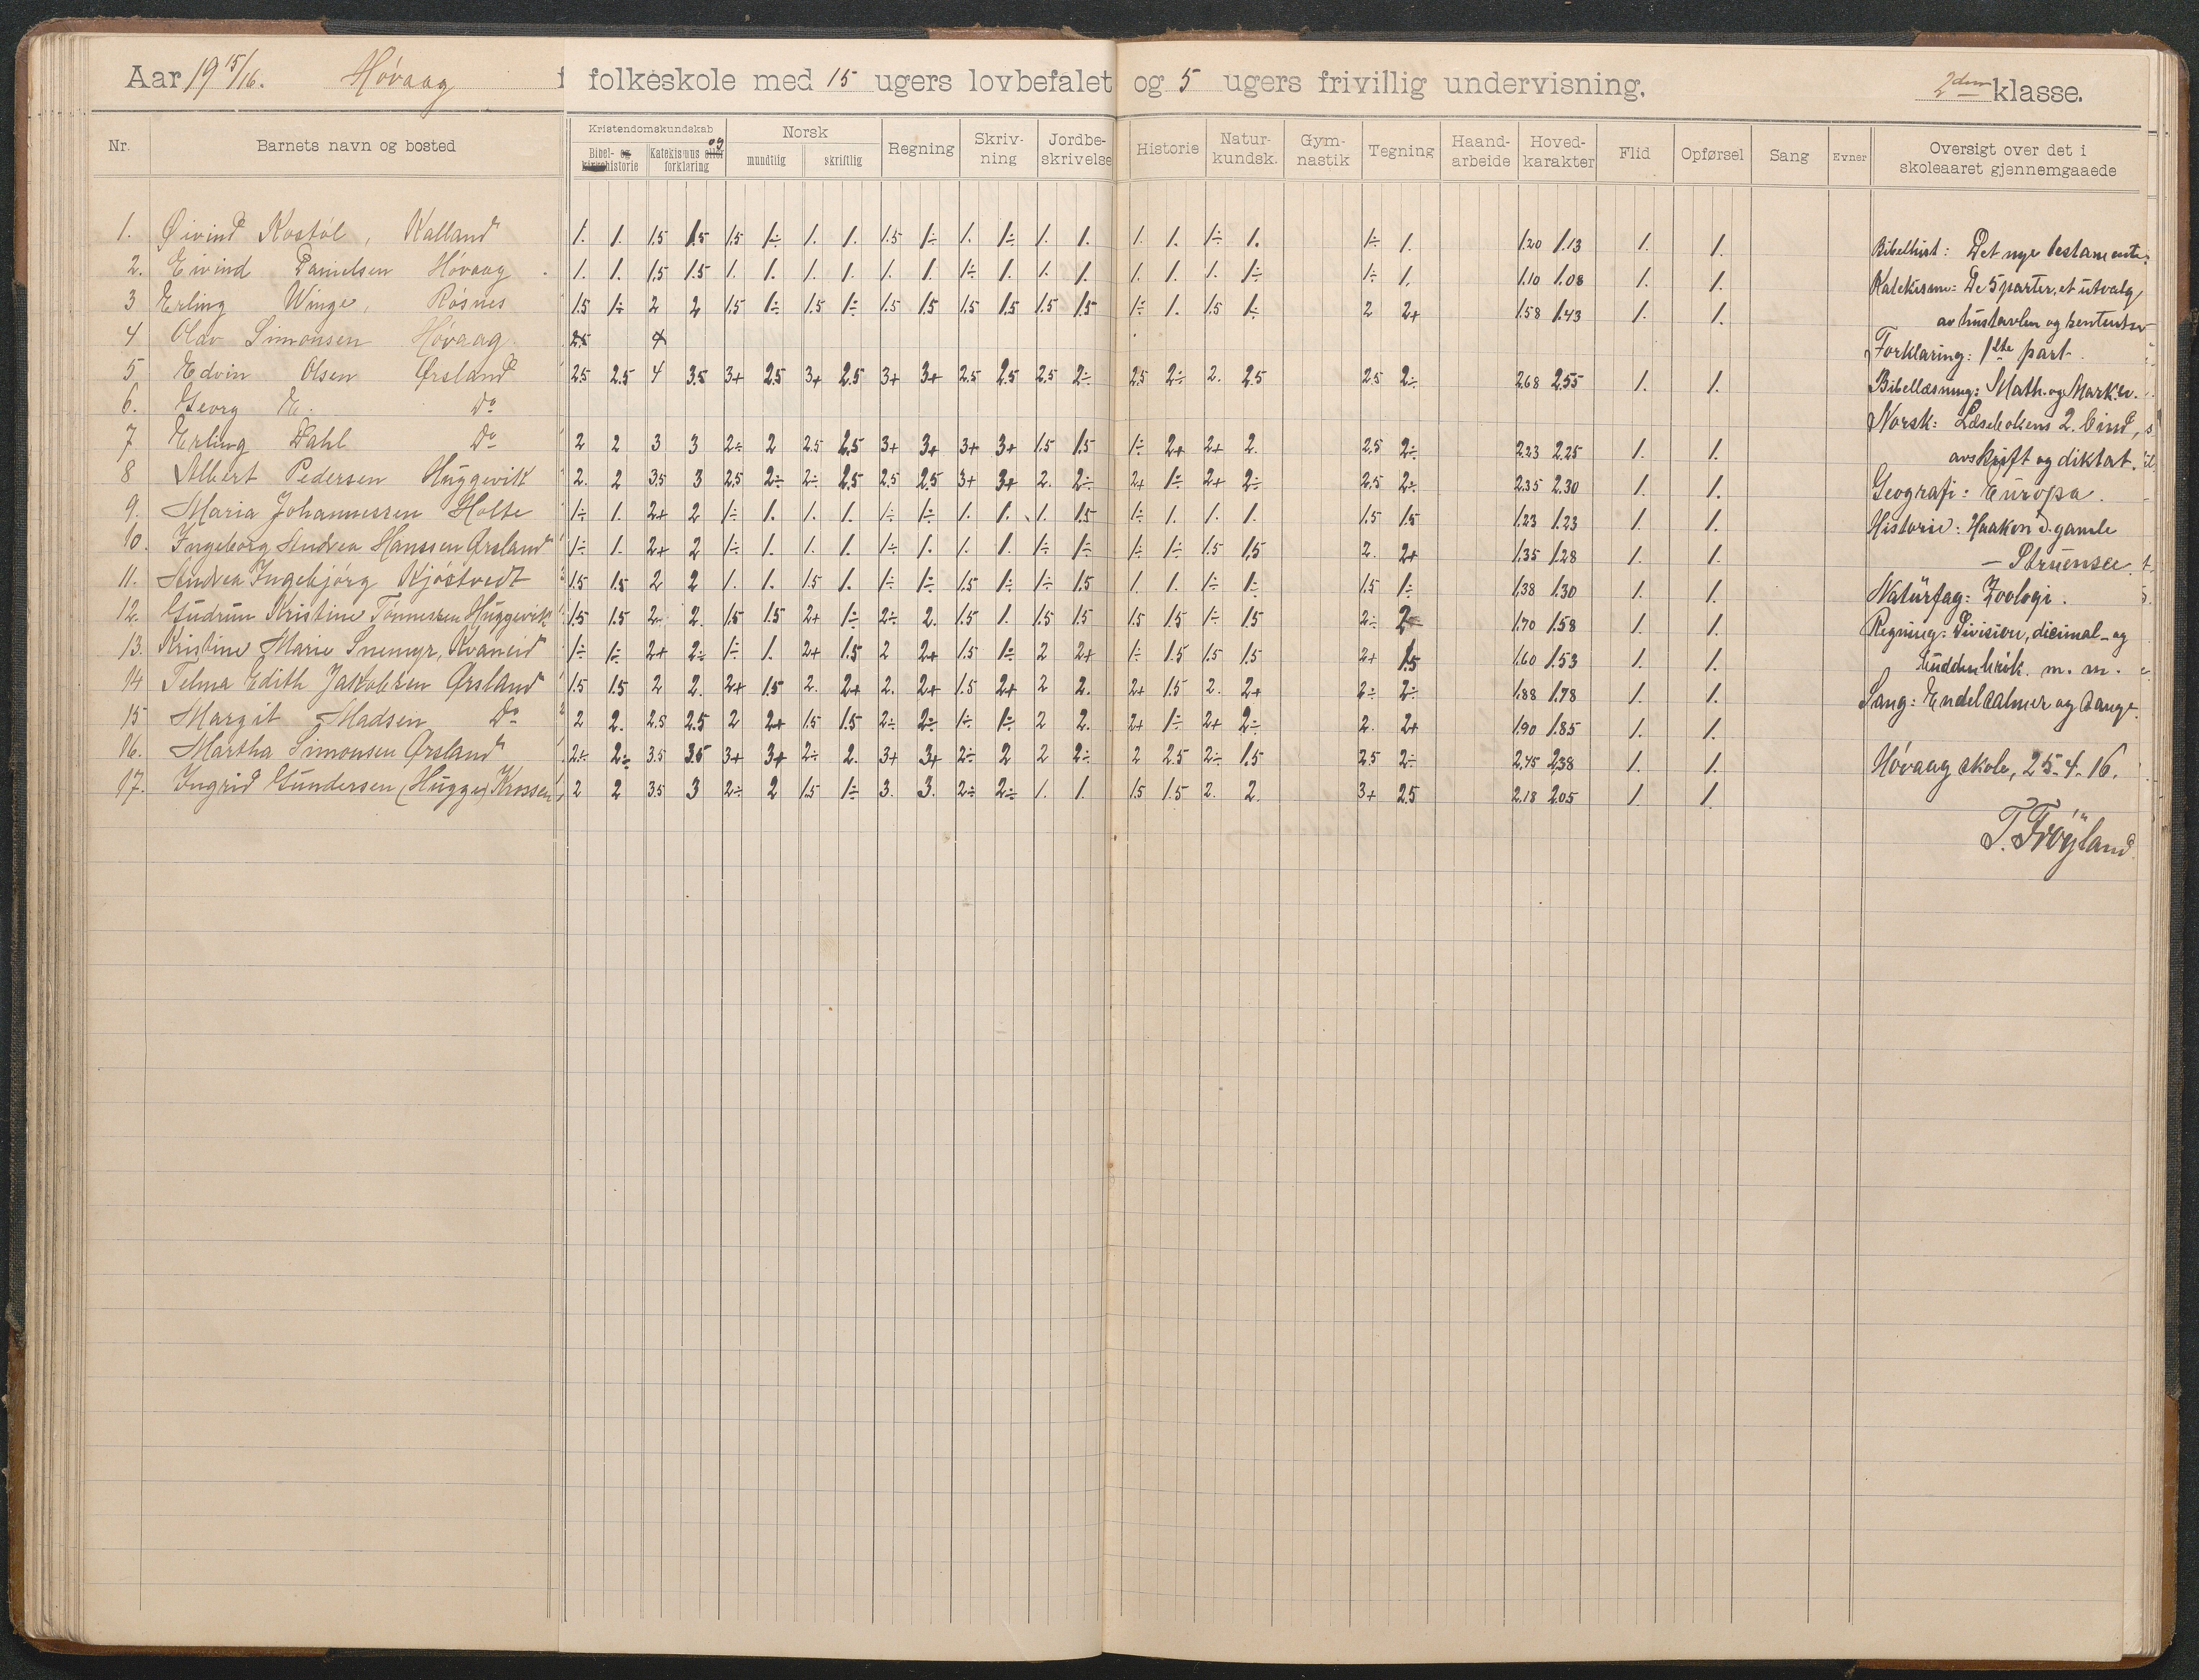 Aar 19 15/16. Høvaag i folkeskole med 15 ugers lovbefalet og 5 ugers frivillig undervisning. 2den klasse.
Nr. Barnets navn og bosted Kristendomskundskab Norsk Regning Skriv-ning Jordbe-skrivelse Historie Natur-kundsk. Gym-nastik Tegning Haand-arbeide Hoved-karakter Flid Opførsel Sang Evner Oversigt over det i skoleaaret gjennemgaaede
Bibel- og kirkehistorie Katekismus eller og forklaring mundtlig skriftlig
1. Øivind Kostøl, Kalland 1. 1. 1.5 1.5 1.5 1÷ 1. 1. 1.5 1÷ 1. 1÷ 1. 1. 1. 1. 1÷ 1. 1÷ 1. 1.20 1.13 1. 1.
2. Eivind Danielsen Høvaag 1. 1. 1.5 1.5 1. 1. 1. 1. 1. 1. 1÷ 1. 1. 1. 1. 1. 1. 1÷ 1÷ 1. 1.10 1.08 1. 1.
3 Erling Winge, Røsnes 1.5 1÷ 2 2 1.5 1÷ 1.5 1÷ 1.5 1.5 1.5 1.5 1.5 1.5 1÷ 1. 1.5 1÷ 2 2+ 1.58 1.43 1. 1.
4 Olav Simonsen Høvaag. 2.5 4
5 Edvin Olsen Ørsland 2.5 2.5 4 3.5 3+ 2.5 3+ 2.5 3+ 3+ 2.5 2.5 2.5 2÷ 2.5 2÷ 2. 2.5 2.5 2÷ 2.68 2.55 1. 1.
6. Georg E. Do
7 Erling Dahl Do 2 2 3 3 2÷ 2 2.5 2.5 3+ 3+ 3+ 3+ 1.5 1.5 1÷ 2+ 2+ 2. 2.5 2÷ 2.23 2.25 1. 1.
8 Albert Pedersen Huggevik 2. 2 3.5 3 2.5 2÷ 2÷ 2.5 2.5 2.5 3+ 3+ 2. 2÷ 2+ 1÷ 2+ 2÷ 2.5 2÷ 2.35 2.30 1. 1.
9. Maria Johannessen Holte 1÷ 1. 2+ 2 1÷ 1. 1. 1. 1÷ 1÷ 1. 1. 1. 1.5 1÷ 1. 1. 1. 1.5 1.5 1.23 1.23 1. 1.
10. Ingeborg Andrea Hanssen Ørsland 1÷ 1. 2+ 2 1÷ 1. 1. 1. 1÷ 1. 1. 1. 1÷ 1÷ 1÷ 1÷ 1.5 1.5 2. 2+ 1.35 1.28 1. 1.
11. Andrea Ingebjørg Kjøstvedt 1.5 1.5 2 2 1. 1. 1.5 1. 1÷ 1÷ 1.5 1÷ 1÷ 1.5 1. 1. 1÷ 1÷ 1.5 1÷ 1.38 1.30 1. 1.
12. Gudrun Kristine Tønnessen Huggevik 1.5 1.5 2 2. 1.5 1.5 2+ 1÷ 2÷ 2. 1.5 1. 1.5 1.5 1.5 1.5 1÷ 1.5 2÷ 2 1.70 1.58 1. 1.
13. Kristine Marie Snemyr, Kvaneid 1÷ 1÷ 2+ 2÷ 1÷ 1. 2+ 1.5 2 2+ 1.5 1÷ 2 2+ 1÷ 1.5 1.5 1.5 2+ 1.5 1.60 1.53 1. 1.
14 Telma Edith Jakobsen Ørsland 1.5 1.5 2 2. 2+ 1.5 2. 2+ 2. 2+ 1.5 2+ 2 2. 2+ 1.5 2. 2+ 2÷ 2÷ 1.88 1.78 1. 1.
15 Margit Madsen Do 2 2. 2.5 2.5 2 2+ 1.5 1.5 2÷ 2÷ 1÷ 1÷ 2 2. 2+ 1÷ 2+ 2÷ 2. 2+ 1.90 1.85 1. 1.
16. Martha Simonsen Ørsland 2÷ 2÷ 3.5 3.5 3+ 3+ 2÷ 2. 3+ 3+ 2÷ 2 2 2÷ 2 2.5 2÷ 1.5 2.5 2÷ 2.45 2.38 1. 1.
17. Ingrid Gundersen (Hugge) Krossen 2 2 3.5 3 2÷ 2 1.5 1÷ 3. 3. 2÷ 2÷ 1. 1. 1.5 1.5 2. 2. 3+ 2.5 2.18 2.05 1. 1.
Bibelhist: Det nye testamente.
Katekisme: De 5 parter, et utvalg
av hustavlen og
Forklaring: 1ste part.
Bibellæsning: Math. og Mark. ev.
Norsk: Læsebokens 2. bind,
avskrift og diktat.
Geografi: Europa.
Historie: Haakon d. gamle
— Struensee.
Naturfag: Zoologi.
Regning: Division, decimal- og
m. m.
Sang: Endel salmer og sange.
Høvaag skole, 25-4-16.
T. Frøyland.